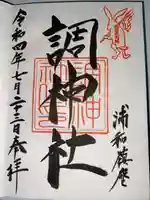 浦和鎮座
調神社
令和四年七月二十三日奉拝